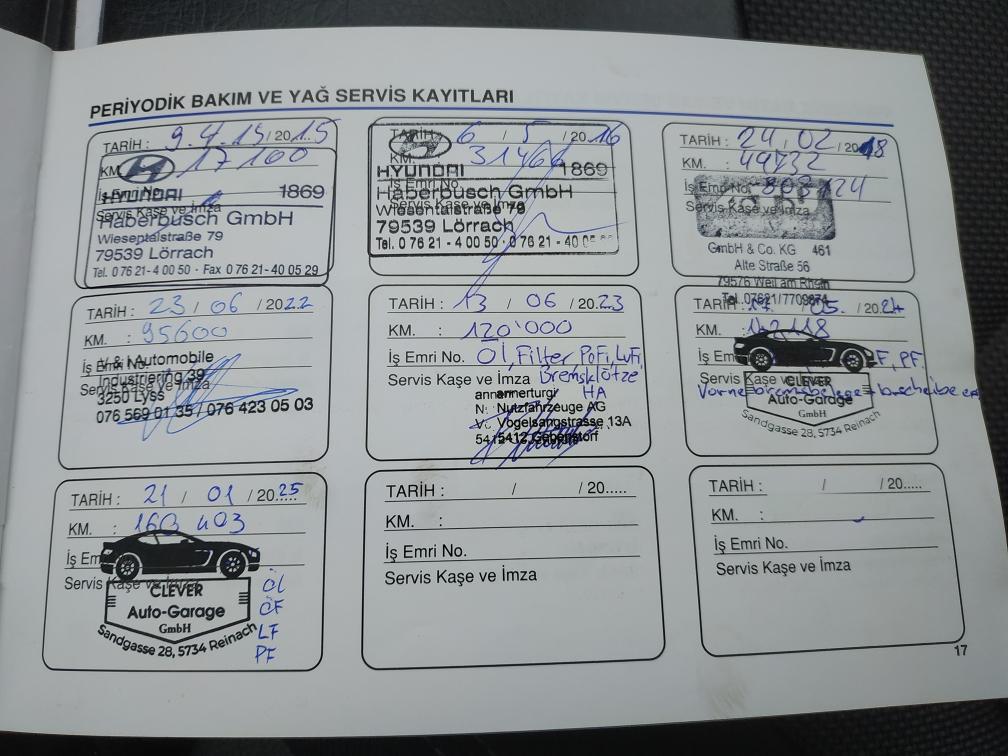 PERİYODİK BAKIM VE YAĞ SERVİS KAYITLARI
TARİH : 9.4.15/2015
KM. 17100
İş Emri No.
HYUNDAI 1869
Haberbusch GmbH
Servis Kaşe ve İmza
Wiesentalstraße 79
79539 Lörrach
Tel. 0 76 21-4 00 50 · Fax 0 76 21-40 05 29
TARİH : 6 / 5 /2016
KM. 31466
HYUNDAI 1869
İş Emri No.
Haberbusch GmbH
Servis Kaşe ve İmza
Wiesentalstraße 79
79539 Lörrach
Tel. 0 76 21-4 00 50 · 0 76 21-40 05
TARİH : 24 / 02 /2018
KM. : 49732
İş Emri No.
Servis Kaşe ve İmza
GmbH & Co. KG 461
Alte Straße 56
79576 Weil am Rhein
Tel. 07621/7709874
TARİH : 23 / 06 /2022
KM. : 95600
İş Emri No.
V & I Automobile
Industriering 39
Servis Kaşe ve İmza
3250 Lyss
076 569 01 35 / 076 423 05 03
TARİH : 13 / 06 /2023
KM. : 120'000
İş Emri No. Öl, Filter PoFi, LuFi,
Servis Kaşe ve İmza Bremsklötze
HA
Nutzfahrzeuge AG
Vogelsangstrasse 13A
5412 Gebenstorf
TARİH : 17 / 05 /2024
KM.
İş Em F, PF.
Servis Kaşe ve
CLEVER
Vorne
Auto-Garage
GmbH
Sandgasse 28, 5734 Reinach
TARİH : 21 / 01 /2025
KM. : 160 403
İş Em
Servis Kaşe ve İmza
CLEVER
Auto-Garage
GmbH
Sandgasse 28, 5734 Reinach
Öl
ÖF
LF
PF
TARİH : / /20.....
KM. :
İş Emri No.
Servis Kaşe ve İmza
TARİH : / /20.....
KM. :
İş Emri No.
Servis Kaşe ve İmza
17